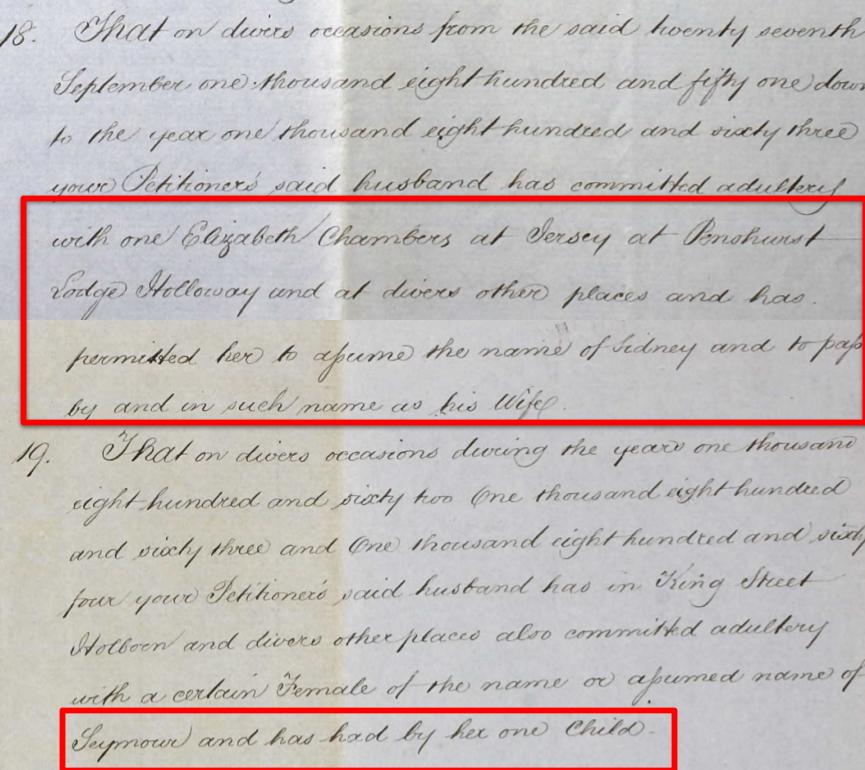 18. That on divers occasions from the said twenty seventh
September one thousand eight hundred and fifty one down
to the year one thousand eight hundred and sixty three
your Petitioner's said husband has committed adultery
with one Elizabeth Chambers at Jersey at Penshurst
Lodge Holloway and at divers other places and has
permitted her to assume the name of Sidney and to pass
by and in such name as his Wife.
19. That on divers occasions during the years one thousand
eight hundred and sixty two One thousand eight hundred
and sixty three and One thousand eight hundred and sixty
four your Petitioner's said husband has in King Street
Holborn and divers other places also committed adultery
with a certain Female of the name or assumed name of
Seymour and has had by her one Child.